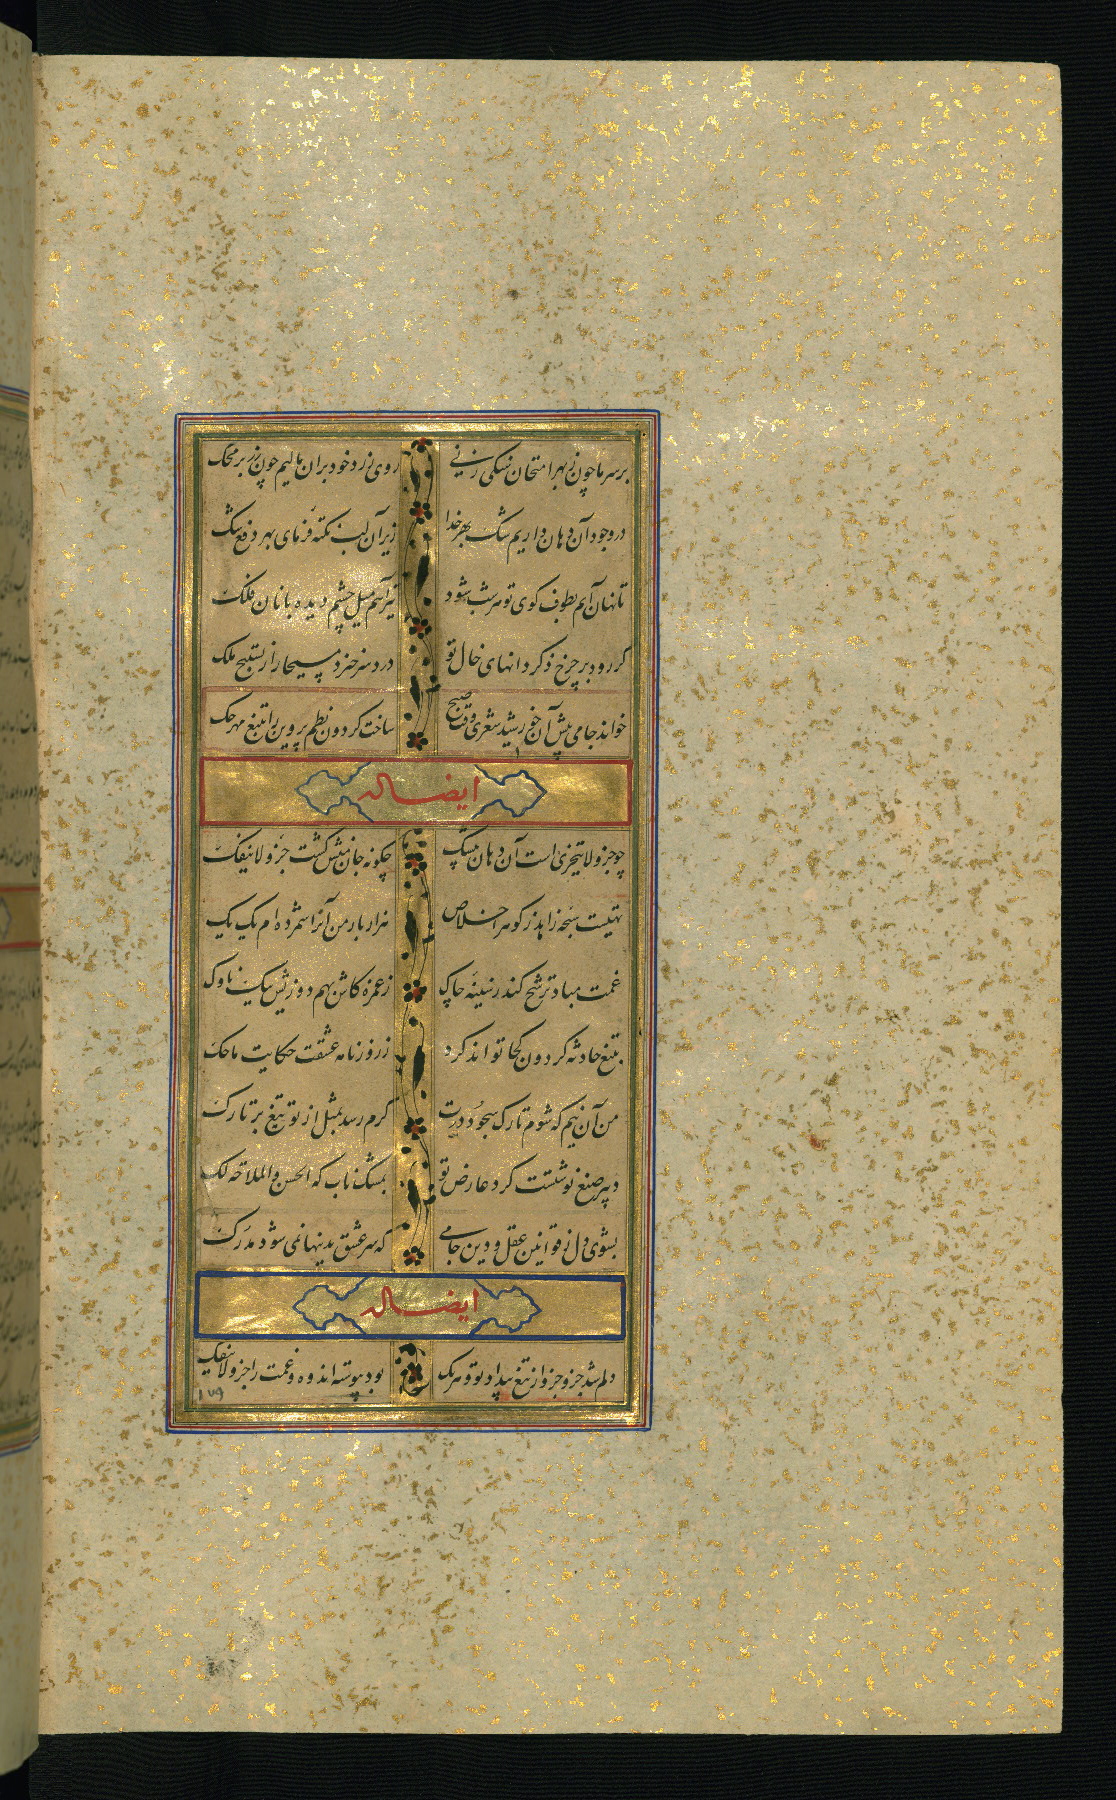 بر سر ما چون ز بهر امتحان سنگی زنی روی زرد خود بران مالیم چون زر بر محک
در وجود آن دهان داریم شک بهر خدا زیر آن لب نکته فرمای بهر دفع شک
تا نهان آیم بطوف کوی تو هر شب شود تیر آهم میل چشم دیده بانان فلک
گر رود بر چرخ ذکر دانهای خال تو درد سر خیزد مسیحا را ز تسبیح ملک
خواند جامی پیش آن خورشید شعری وقت صبح ساخت گردون نظم پروین را بتیغ مهر حک
ایضا له
چو جزو لا یتجزی است آن دهان تنگ چگونه جان منش گشت جزو لا ینفک
تهیست سبحه زاهد ز گوهر اخلاص هزار بار من آنرا شمرده ام یک یک
غمت مباد ترشح کند ز سینه چاک ز غمزه کاش بهم دوزیش بیک ناوک
بتیغ حادثه گردون کجا تواند کرد ز روزنامه عشقت حکایت ما حک
من آن نیم که شوم تارک سجود درت گرم رسد بمثل از تو تیغ بر تارک
دبیر صنع نوشتست گرد عارض تو بمشک ناب که الحسن و الملاحة لک
بشوی دل ز قوانین عقل و دین جامی که سر عشق بدینها نمی شود مدرک
ایضا له
دلم شد جزو جزو از تیغ بیداد تو و هر یک بود پیوسته اندوه و غمت را جزو لا ینفک
١٧٩